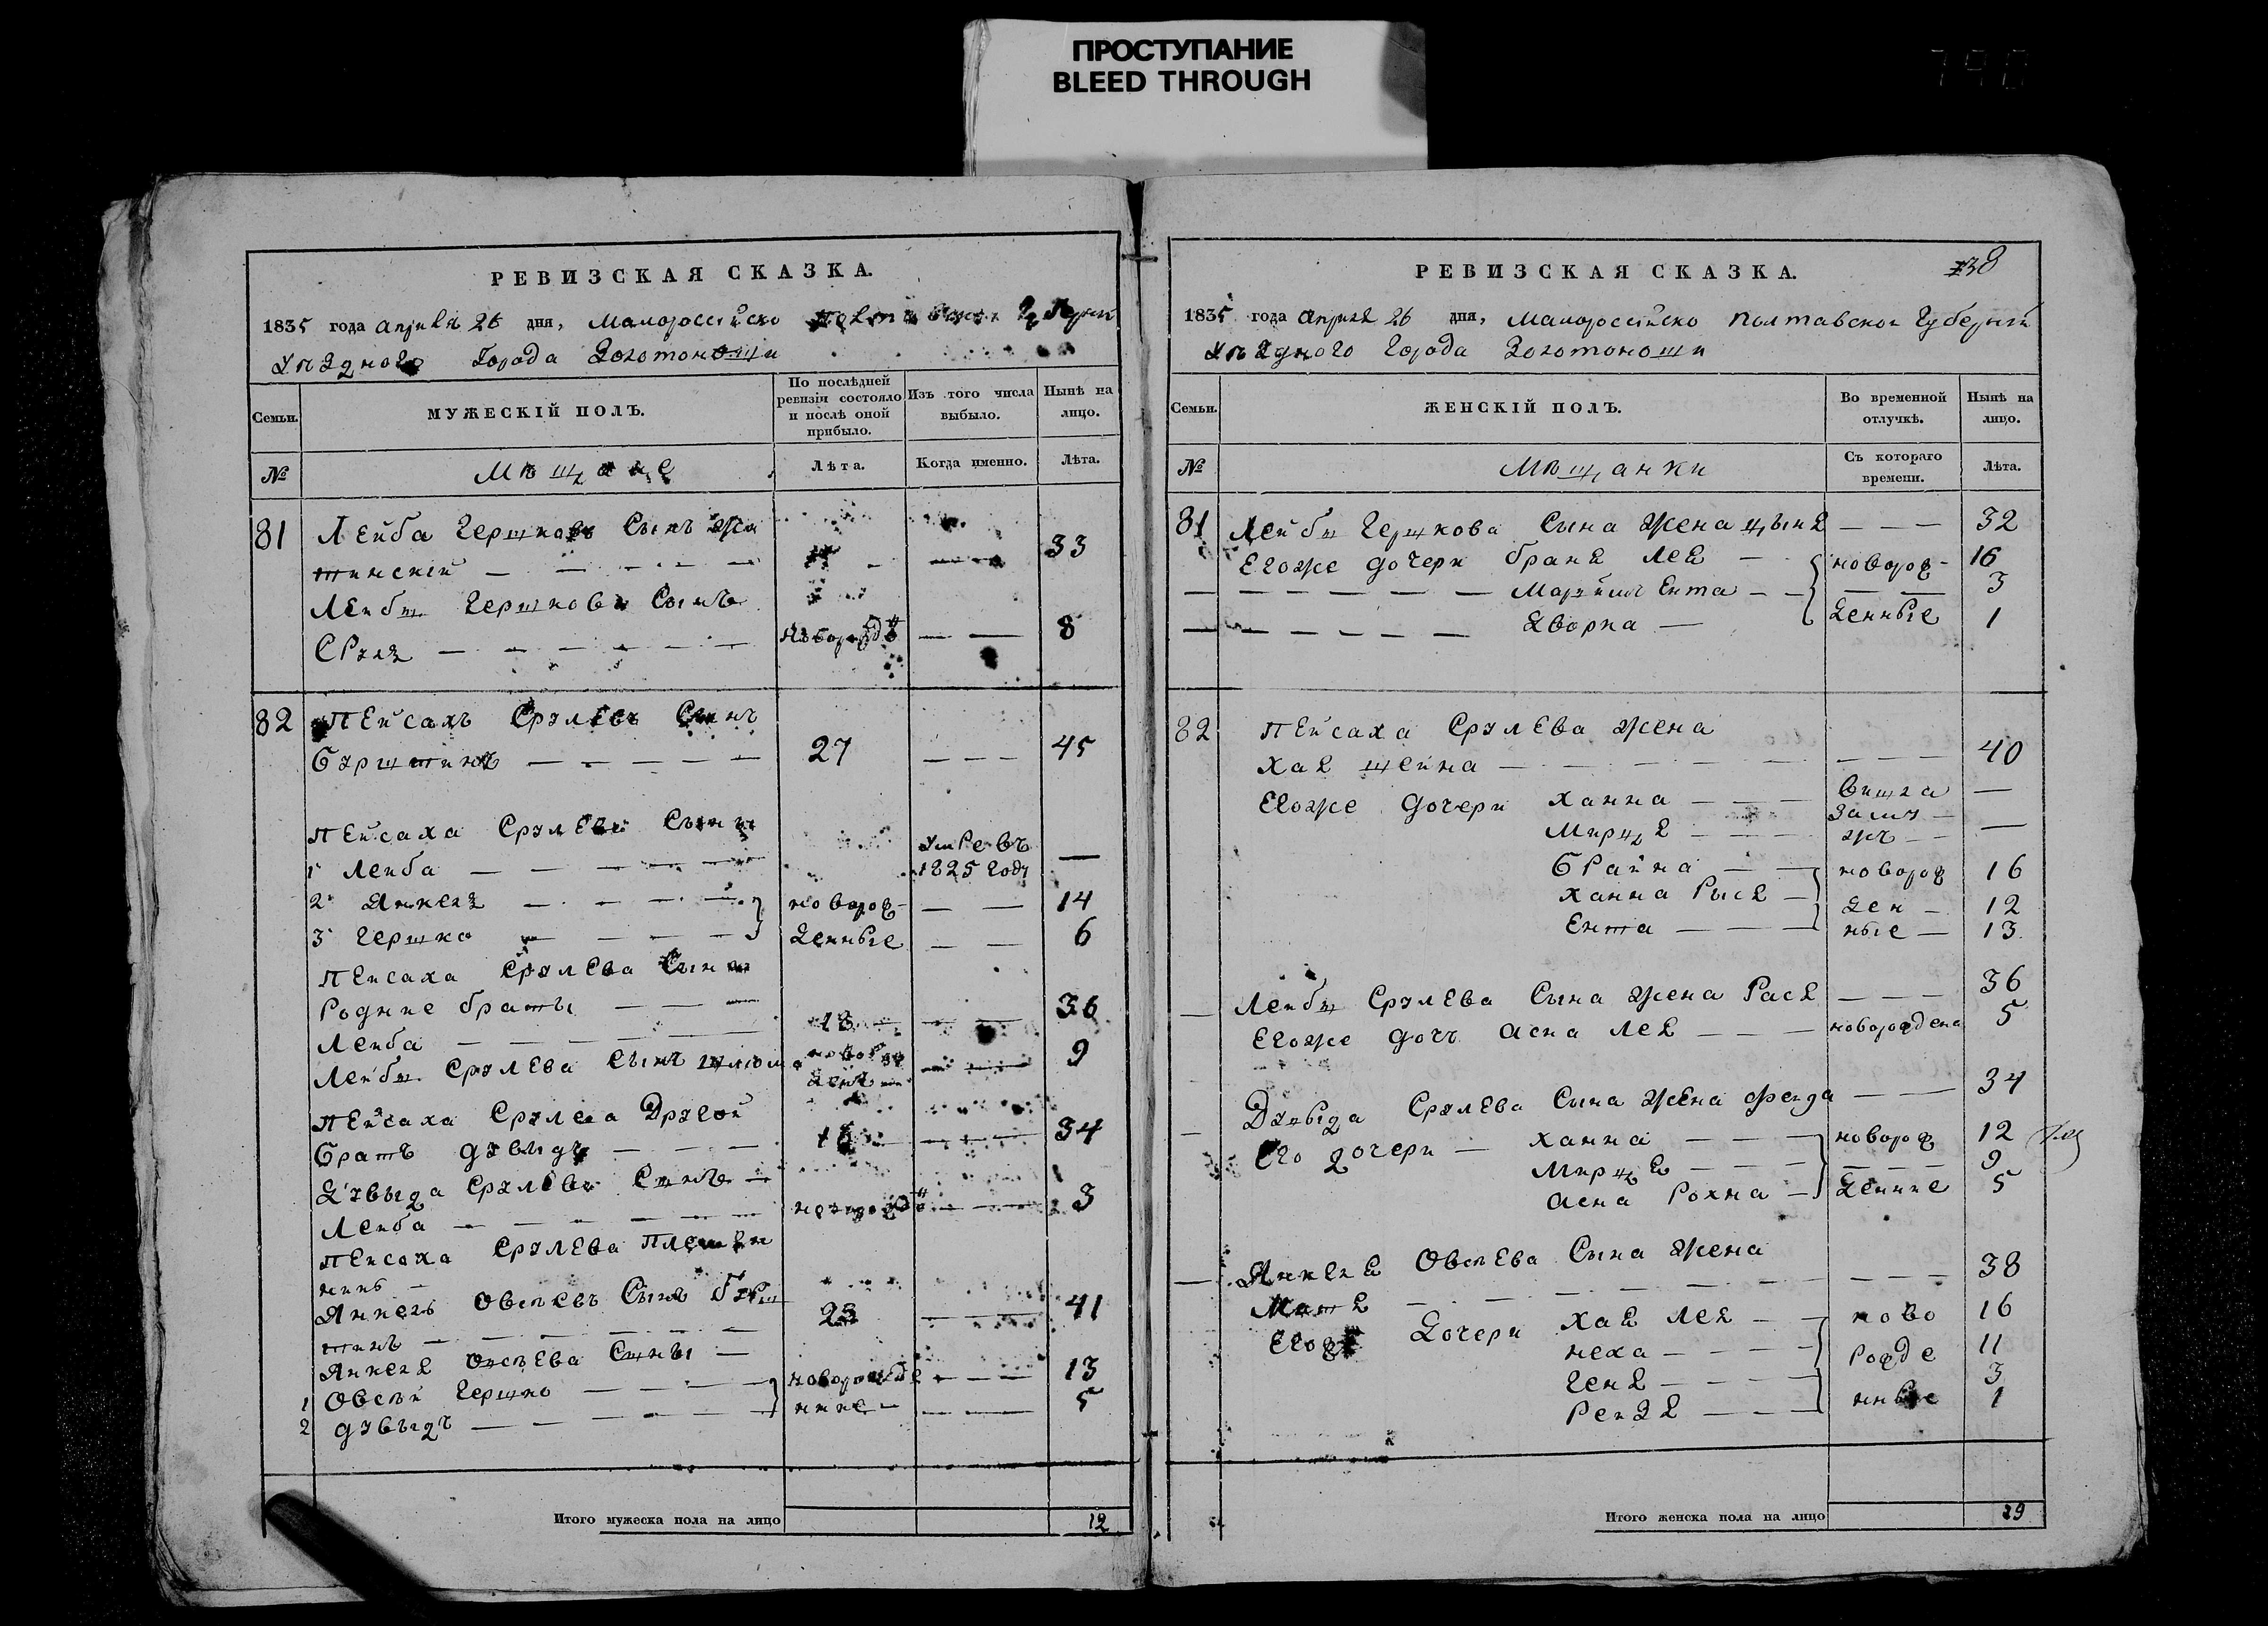 ПРОСТУПАНИЕ
BLEED THROUGH
РЕВИЗСКАЯ СКАЗКА.
1835 года апреля 26 дня, Малоросейско
Уѣздного Города Золотоноши
Семьи.
МУЖЕСКІЙ ПОЛЪ.
По послѣдней ревизіи состояло и послѣ оной прибыло.
Изъ того числа выбыло.
Нынѣ на лицо.
№
Мѣщане
Лѣта.
Когда именно.
Лѣта.
81 Лейба Гершковъ Сынъ
тинскій — 33
Лейбы Гершкова Сынъ
Сруль — 8
82 Пейсахъ Срулевъ Сынъ
Бурштинъ — 27 — 45
Пейсаха Срулева Сыны
1 Лейба — умревъ 1825 году —
2 Янкель — новорож- — 14
3 Гершко — денные — 6
Пейсаха Срулева
Родние браты —
Лейба — 18 — 36
Лейбы Срулева Сынъ Шлюма — 9
Пейсаха Срулева Другой
Братъ Дувыдъ — 16 — 34
Дувыда Срулева Сынъ —
Лейба — 3
Пейсаха Срулева Племян
никъ —
Янкель Овсѣевъ Сынъ Бурш
тинъ — 23 — 41
Янкеля Овсѣева Сыны —
1 Овсѣй Гершко — 13
2 Дувыдъ — 5
Итого мужеска пола на лицо 12
РЕВИЗСКАЯ СКАЗКА. 38
1835 года апреля 26 дня, Малоросейско Полтавской Губерний
Уѣздного Города Золотоноши
Семьи.
ЖЕНСКІЙ ПОЛЪ.
Во временной отлучкѣ.
Нынѣ на лицо.
№
Мѣщанки
Съ котораго времени.
Лѣта.
81 Лейбы Гершкова Сына Жена — 32
Егоже дочери Брана Лея — новорож- 16
— Ента — 3
— Дворка — денные 1
82 Пейсаха Срулева Жена
Хая Шейна — 40
Егоже Дочери Ханна — вишла —
Мирця — замужъ —
Брайна — новорож 16
Ханна Рися — ден — 12
Ента — ные — 13
— Лейбы Срулева Сына Жена Рася — 36
Егоже дочъ Асна Лея — новорождена 5
— Дувыда Срулева Сына Жена Фейда — 34
Его дочери — Ханна — новорож 12
Мирця — 9
Асна Рохма — денние 5
— Янкеля Овсѣева Сына Жена
Матя — 38
Дочери Хая Лея — ново 16
Неха — рожде 11
Геня — 3
Рейзя — нные 1
Итого женска пола на лицо 19